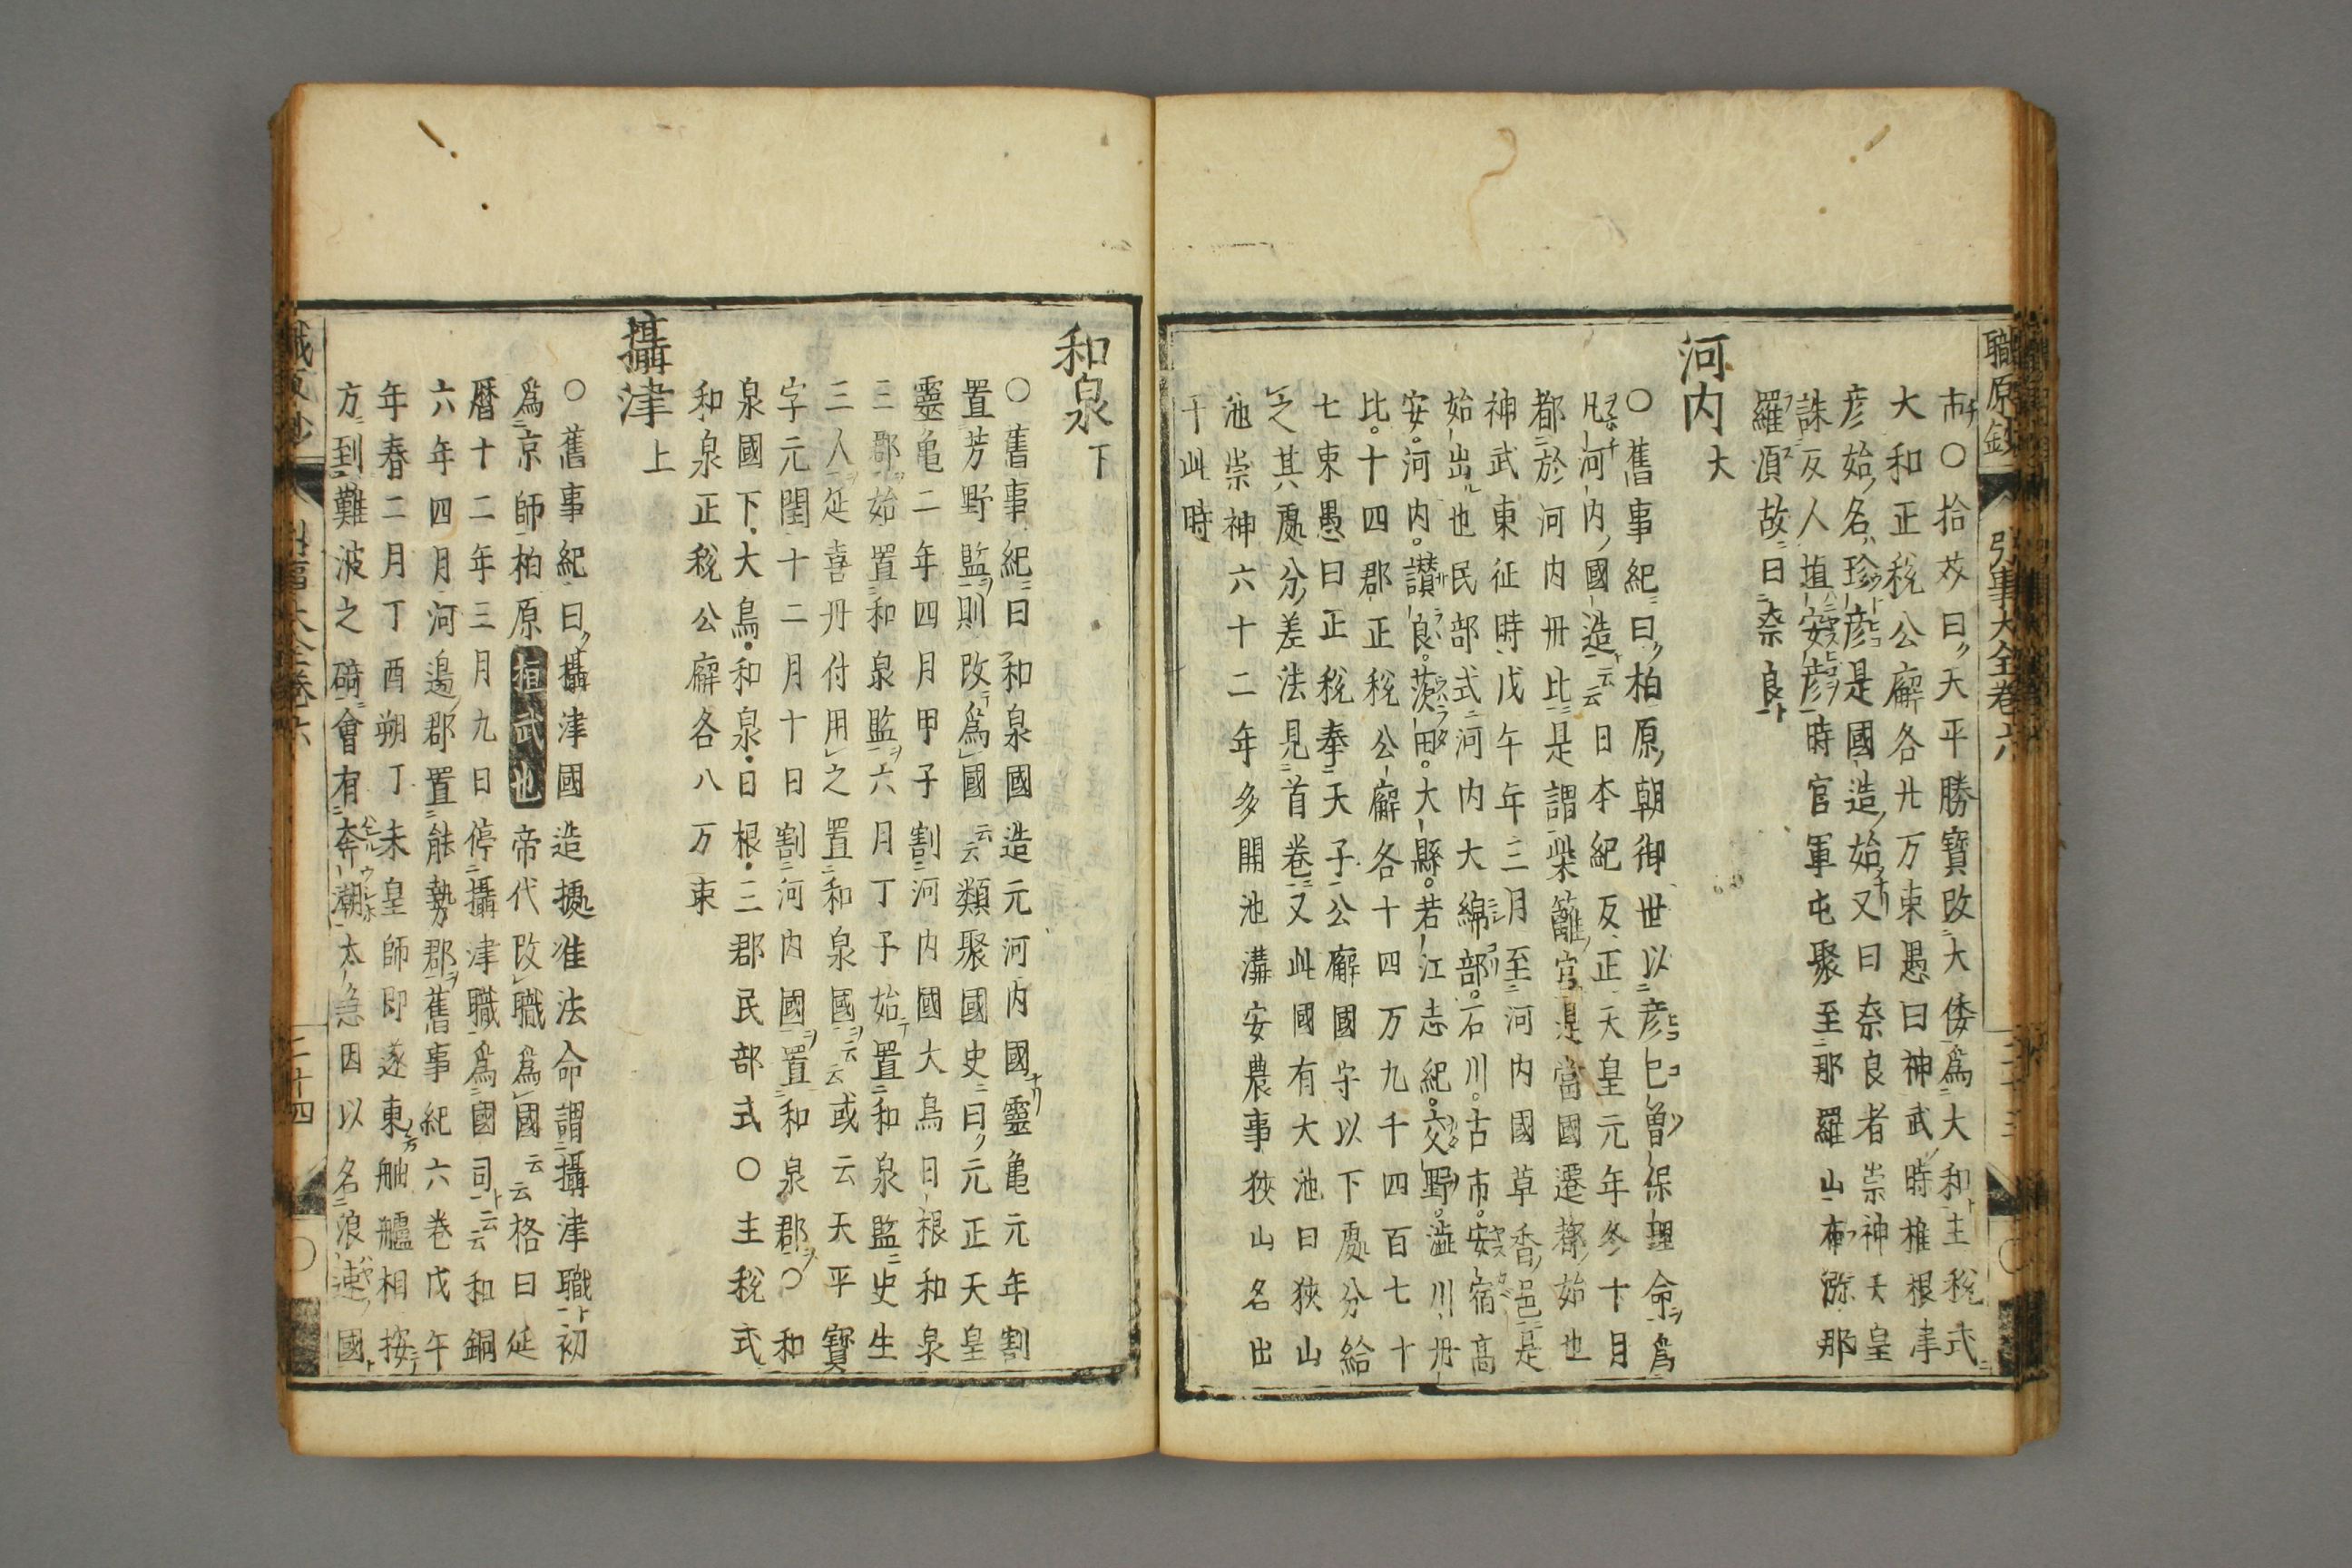 職原鈔 引事大全卷六
市○拾芥曰天平勝寶改大倭爲大和主税式
大和正税公廨各廾万束愚曰神武時椎根津
彦始名珍彦是國造始又曰奈良者崇神天皇
誅反人埴安彦時官軍屯聚至那羅山布㳽那
羅湏故曰奈良
河内大
○舊事紀曰柏原朝御世以彦巳曽保理命爲
凡河内國造云云日本紀反正天皇元年冬十月
都於河内丹比是謂柴籬宮是當國遷都始也
神武東征時戊午年三月至河内國草香邑是
始出也民部式河内大綿部石川古市安宿髙
安河内讃良茨田大縣若江志紀交野澁川丹
比十四郡正税公廨各十四万九千四百七十
七束愚曰正税奉天子公廨國守以下處分給
之其處分差法見首卷又此國有大池曰狹山
池崇神六十二年多開池溝安農事狹山名出
于此時
和泉下
○舊事紀曰和泉國造元河内國靈亀元年割
置芳野監則改爲國云云類聚國史曰元正天皇
靈亀二年四月甲子割河内國大鳥日根和泉
三郡始置和泉監六月丁予始置和泉監史生
三人延喜丹付用之置和泉國云云或云天平寳
字元閏十二月十日割河内國置和泉郡○和
泉國下大鳥和泉日根三郡民部式○主税式
和泉正税公廨各八万束
攝津上
○舊事紀曰攝津國造攄准法命謂攝津職初
爲京師柏原桓武也帝代改職爲國云云格曰延
暦十二年三月九日停攝津職爲國司云云和銅
六年四月河邉郡置能勢郡舊事紀六卷戊午
年春二月丁酉朔丁未皇師即遂東舳艫相按
方到難波之碕會有奔潮太急因以名浪速國
二十四